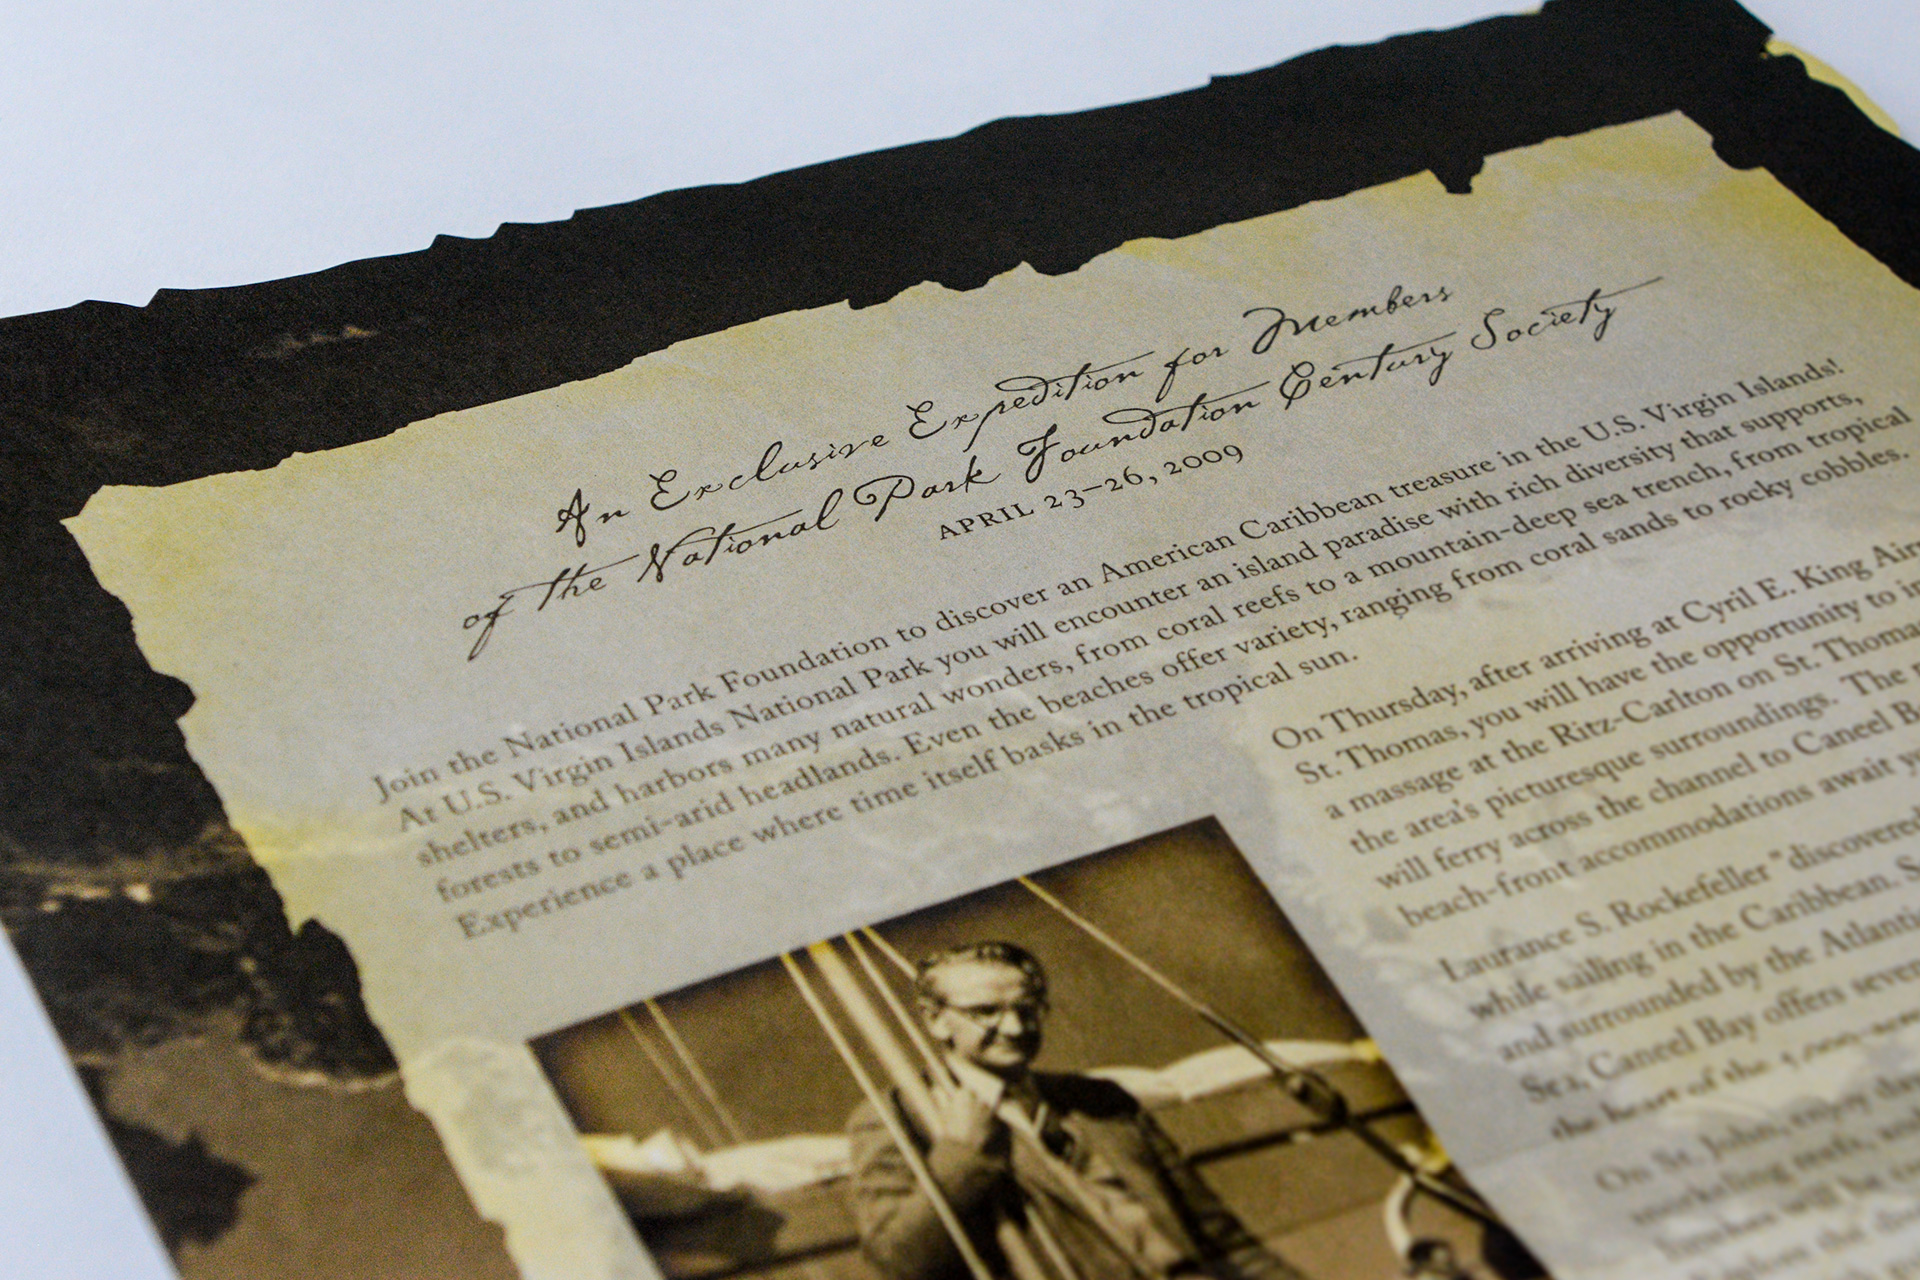 An Exclusive Expedition for Members
of the National Park Foundation Century Society
APRIL 23–26, 2009
Join the National Park Foundation to discover an American Caribbean treasure in the U.S. Virgin Islands!
At U.S. Virgin Islands National Park you will encounter an island paradise with rich diversity that supports,
shelters, and harbors many natural wonders, from coral reefs to a mountain-deep sea trench, from tropical
forests to semi-arid headlands. Even the beaches offer variety, ranging from coral sands to rocky cobbles.
Experience a place where time itself basks in the tropical sun.
On Thursday, after arriving at Cyril E. King Air
St. Thomas, you will have the opportunity to
a massage at the Ritz-Carlton on St. Thomas
the area's picturesque surroundings. The
will ferry across the channel to Caneel B
beach-front accommodations await
Laurance S. Rockefeller "discovered
while sailing in the Caribbean.
and surrounded by the Atlantic
Sea, Caneel Bay offers seve
the heart of the
On St. John, enjoy
reefs,
will be